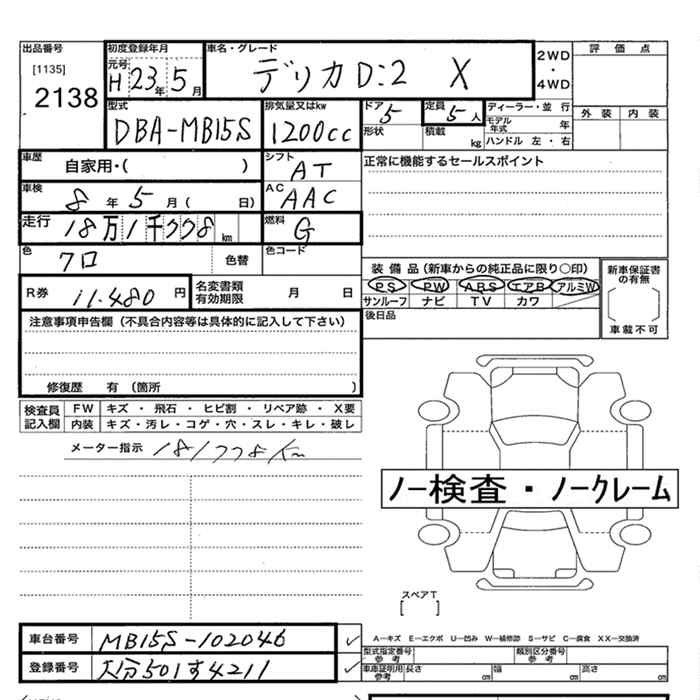 出品番号
[1135]
2138
初度登録年月
元号
H 23年 5月
車名・グレード
デリカD:2 X
2WD
・
4WD
評価点
外装 内装
型式
DBA-MB15S
排気量又はkw
1200cc
ドア
5
形状
定員
5人
積載
kg
ディーラー・並行
モデル年式 年
ハンドル 左・右
車歴
自家用・( )
シフト
AT
正常に機能するセールスポイント
車検
8年 5月( 日)
AC
AAC
走行
18万1千778km
燃料
G
色
クロ
色替
色コード
装備品(新車からの純正品に限り○印)
PS PW ABS エアB アルミW
サンルーフ ナビ TV カワ
新車保証書
の有無
車載不可
R券
11.480円
名変書類
有効期限
月 日
後日品
注意事項申告欄(不具合内容等は具体的に記入して下さい)
修復歴 有(箇所 )
検査員
記入欄
FW キズ・飛石・ヒビ割・リペア跡・X要
内装 キズ・汚レ・コゲ・穴・スレ・キレ・破レ
メーター指示 181778km
ノー検査・ノークレーム
スペアT
[ ]
車台番号
MB15S-102046
登録番号
大分501す4211
A―キズ E―エクボ U―凹み W―補修跡 S―サビ C―腐食 XX―交換済
型式指定番号
参考
類別区分番号
参考
車庫証明用
参考
長さ cm 幅 cm 高さ cm